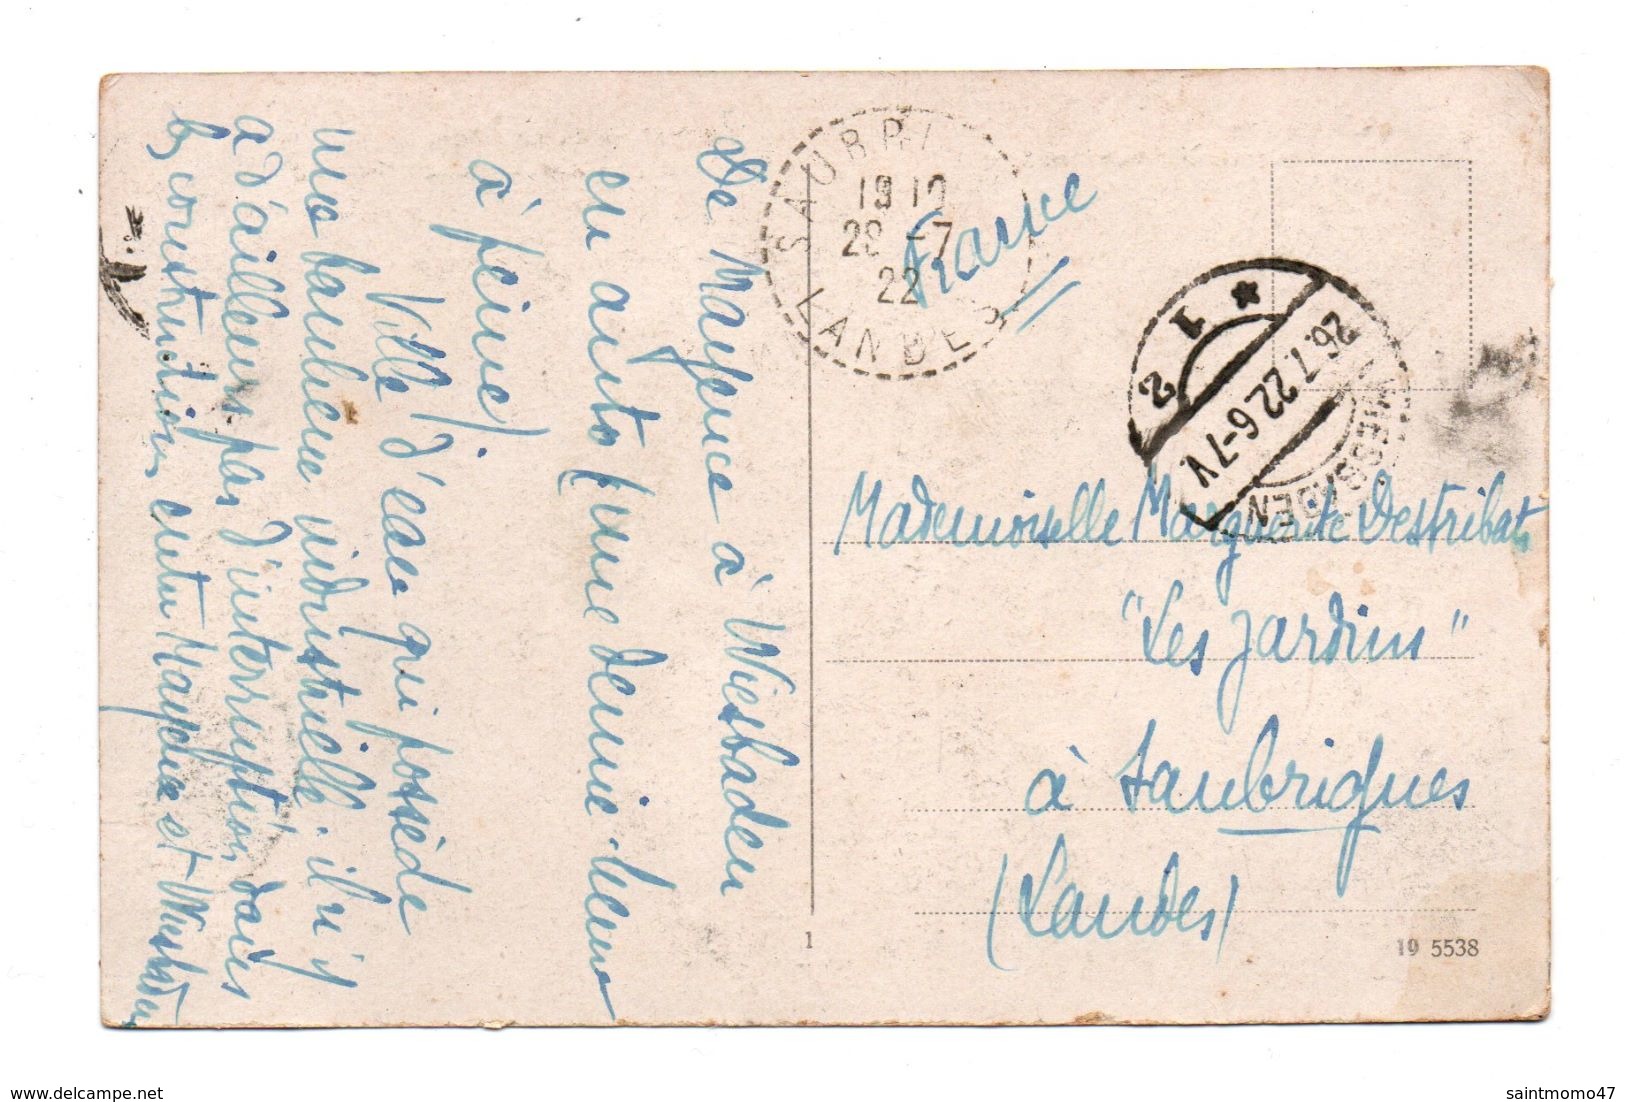 De Mayence à Wiesbaden
en auto (une demie-heure
à peine).
Ville d'eau qui possède
une banlieue industrielle; il n'y
a d'ailleurs pas d'interruption dans
les constructions entre Mayence et Wiesbaden
France
Mademoiselle Marguerite Destribats
"Les Jardins"
à Saubrigues
(Landes)
SAUBRI
19 10
28 -7
22
LANDES
WIESBADEN
26.7.22.6-7V.
* 1
2
1
19 5538
delcampe.net
saintmomo47